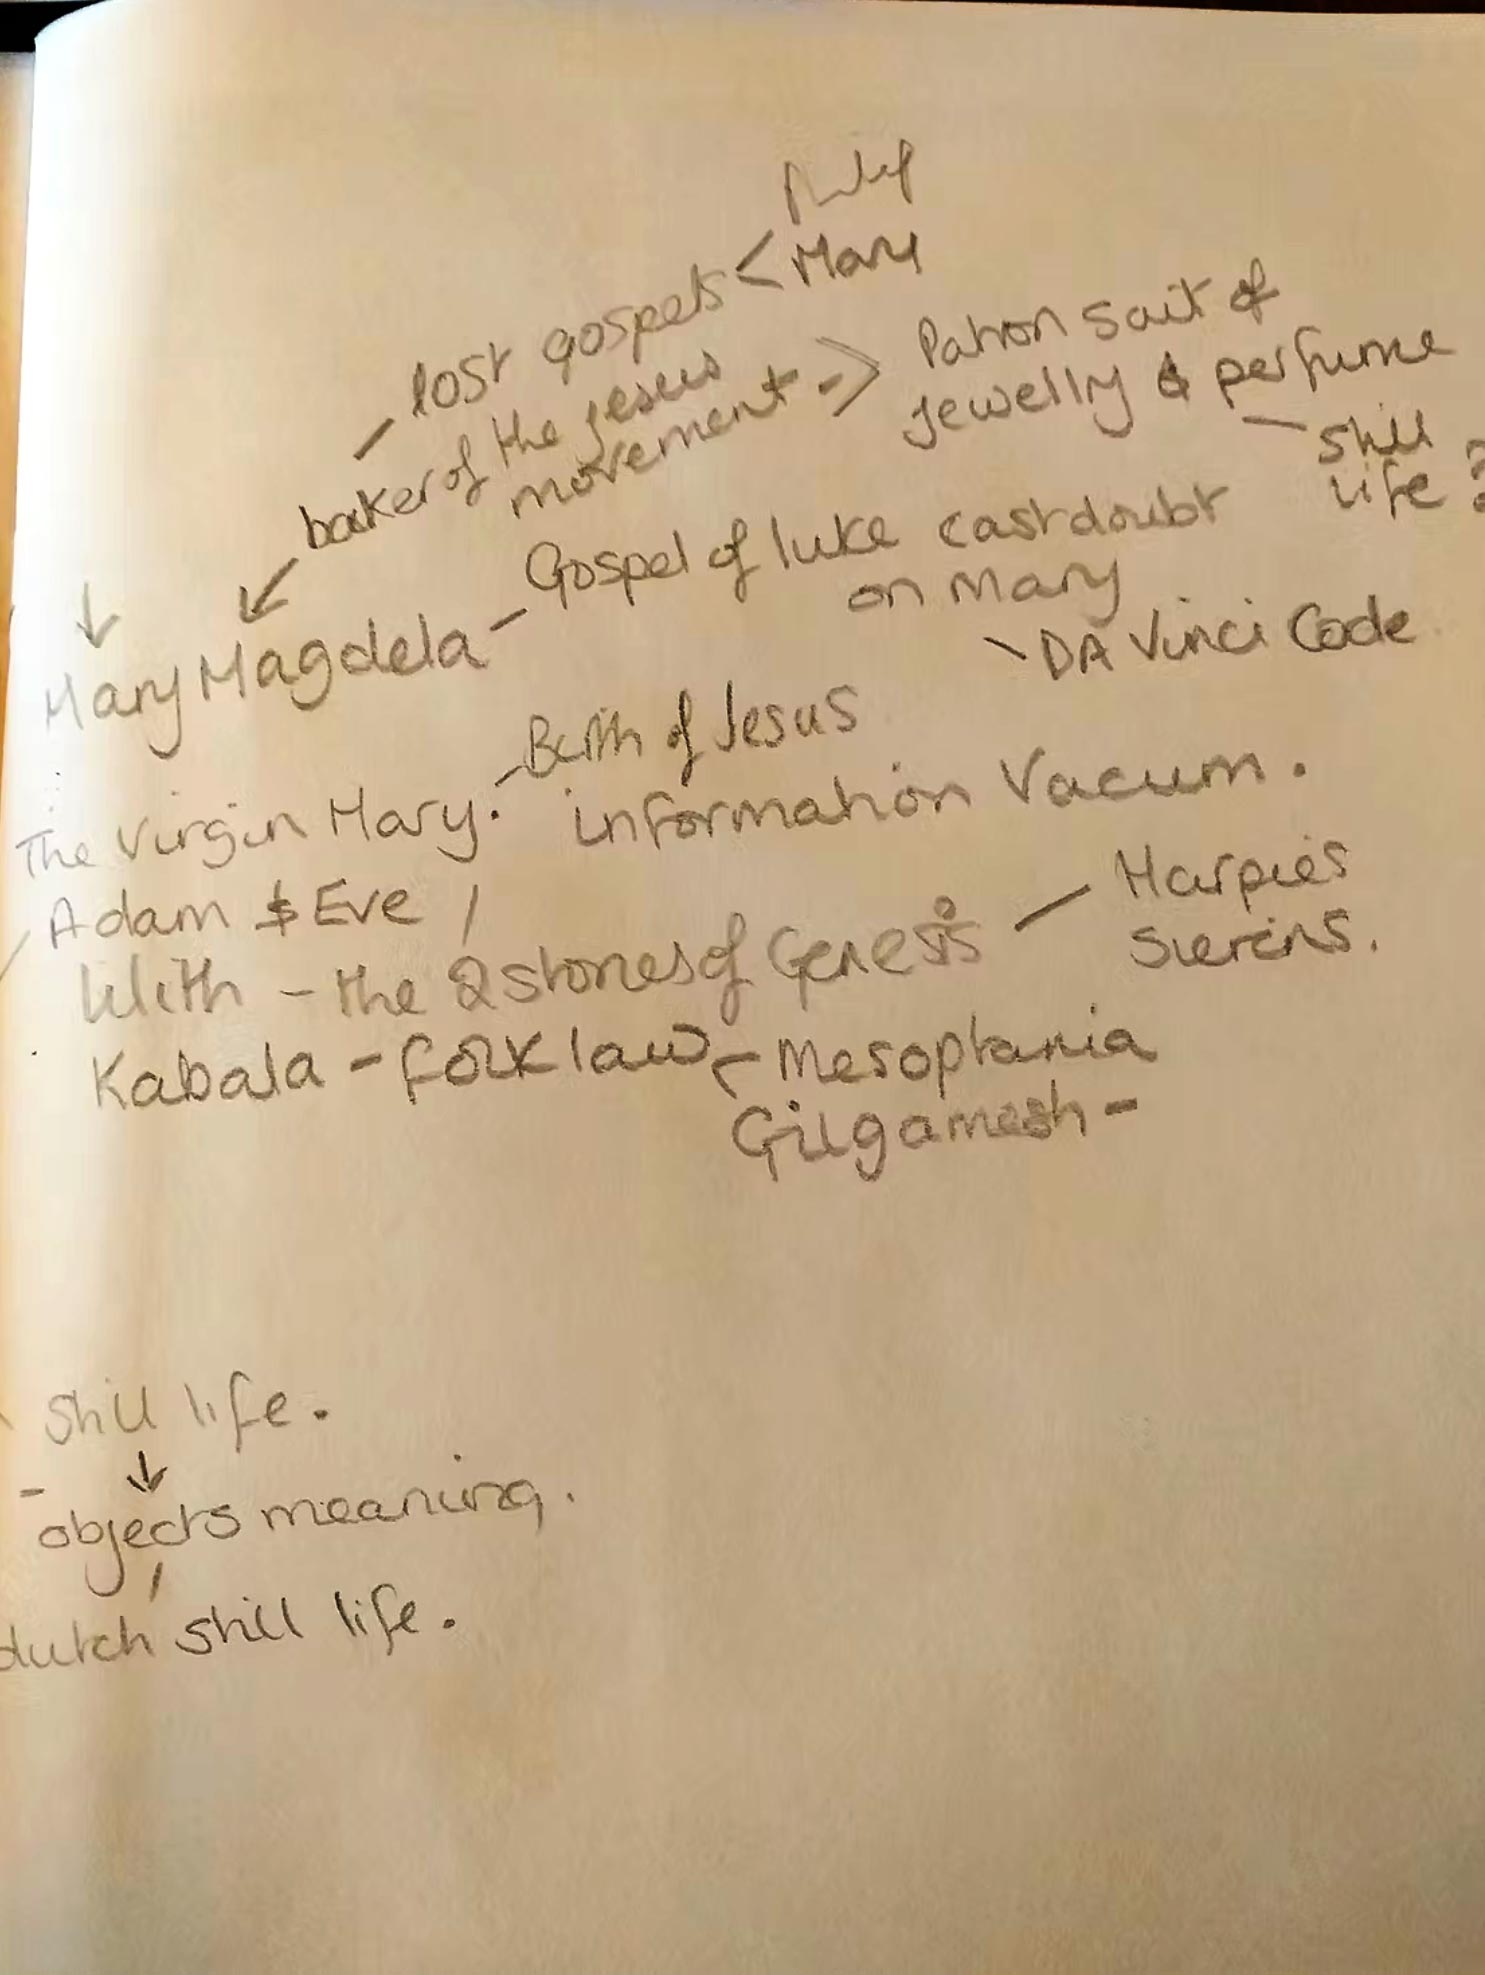 Philip
lost gospels < Mary
backer of the jesus
movement => Patron sait of
jewellry & perfume
- still
life ?
Mary Magdela - Gospel of luke cast doubt
on Mary
DA Vinci Code
The Virgin Mary. - Birth of Jesus
information Vacum.
Adam & Eve /
lilith - the 2 stories of Genesis - Harpies
Sierens.
Kabala - folk law - Mesoptamia
Gilgamesh -
Still life.
- objects meaning.
dutch still life.